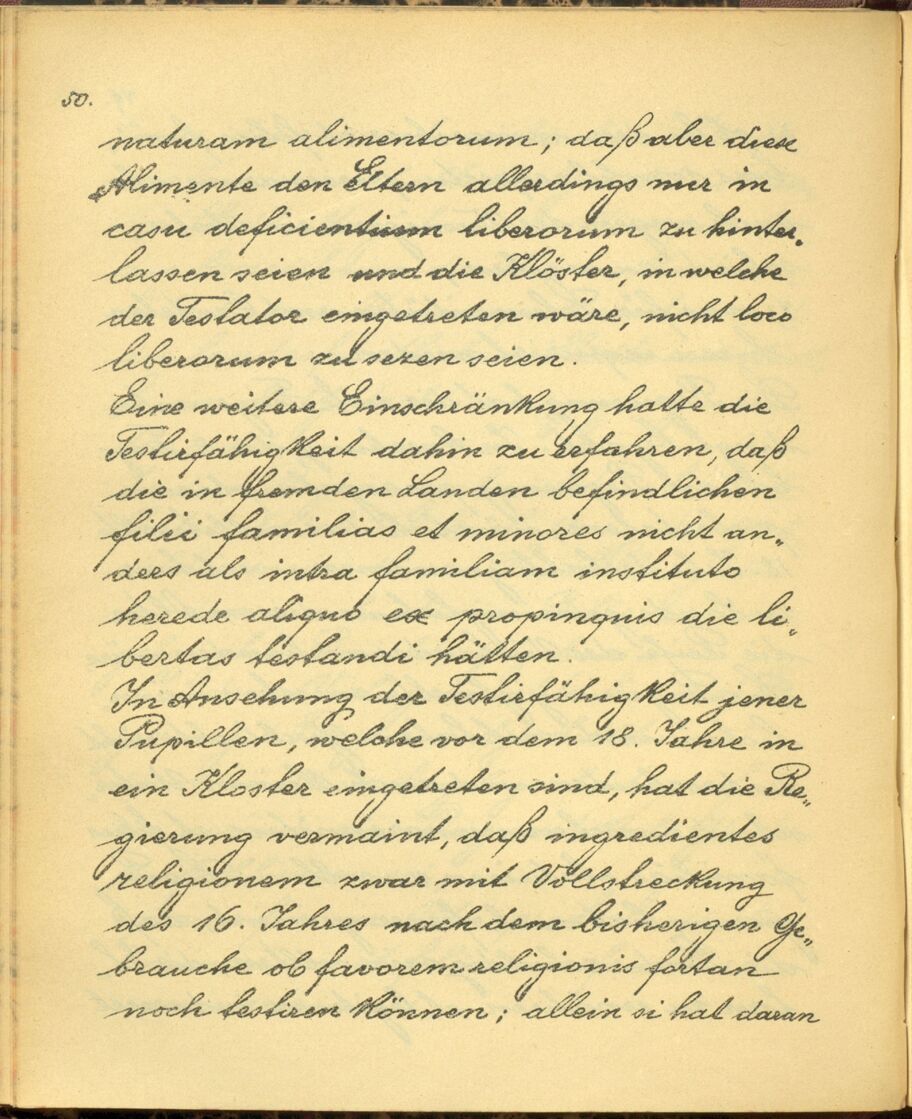 50.
naturam alimentorum; daß aber diese
Alimente den Eltern allerdings nur in
casu deficientium liberorum zu hinter„
lassen seien und die Klöster, in welche
der Testator eingetreten wäre, nicht loco
liberorum zu sezen seien.
Eine weitere Einschränkung hatte die
Testirfähigkeit dahin zu erfahren, daß
die in fremden Landen befindlichen
filii familias et minores nicht an„
ders als intra familiam instituto
herede aliquo ex propinquis die li„
bertas testandi hätten.
In Ansehung der Testirfähigkeit jener
Pupillen, welche vor dem 18. Jahre in
ein Kloster eingetreten sind, hat die Re„
gierung vermaint, daß ingredientes
religionem zwar mit Vollstreckung
des 16. Jahres nach dem bisherigen Ge„
brauche ob favorem religionis fortan
noch testiren können; allein si hat daran